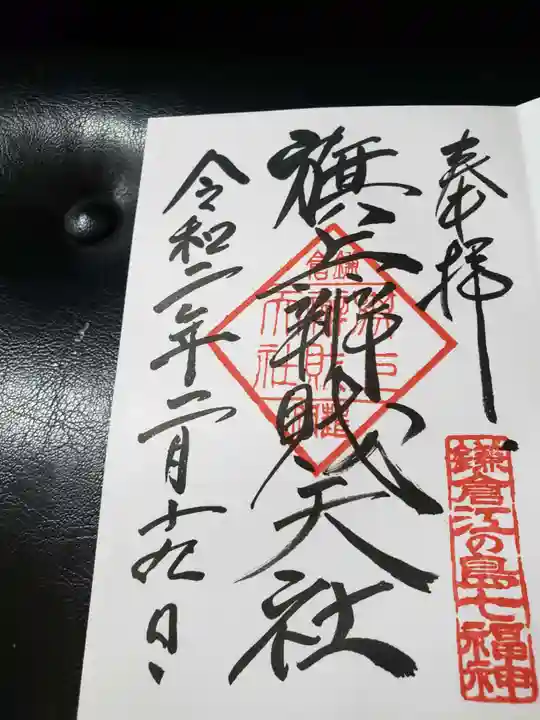 奉拝
鎌倉江の島七福神
旗上辨財天社
令和二年二月十九日